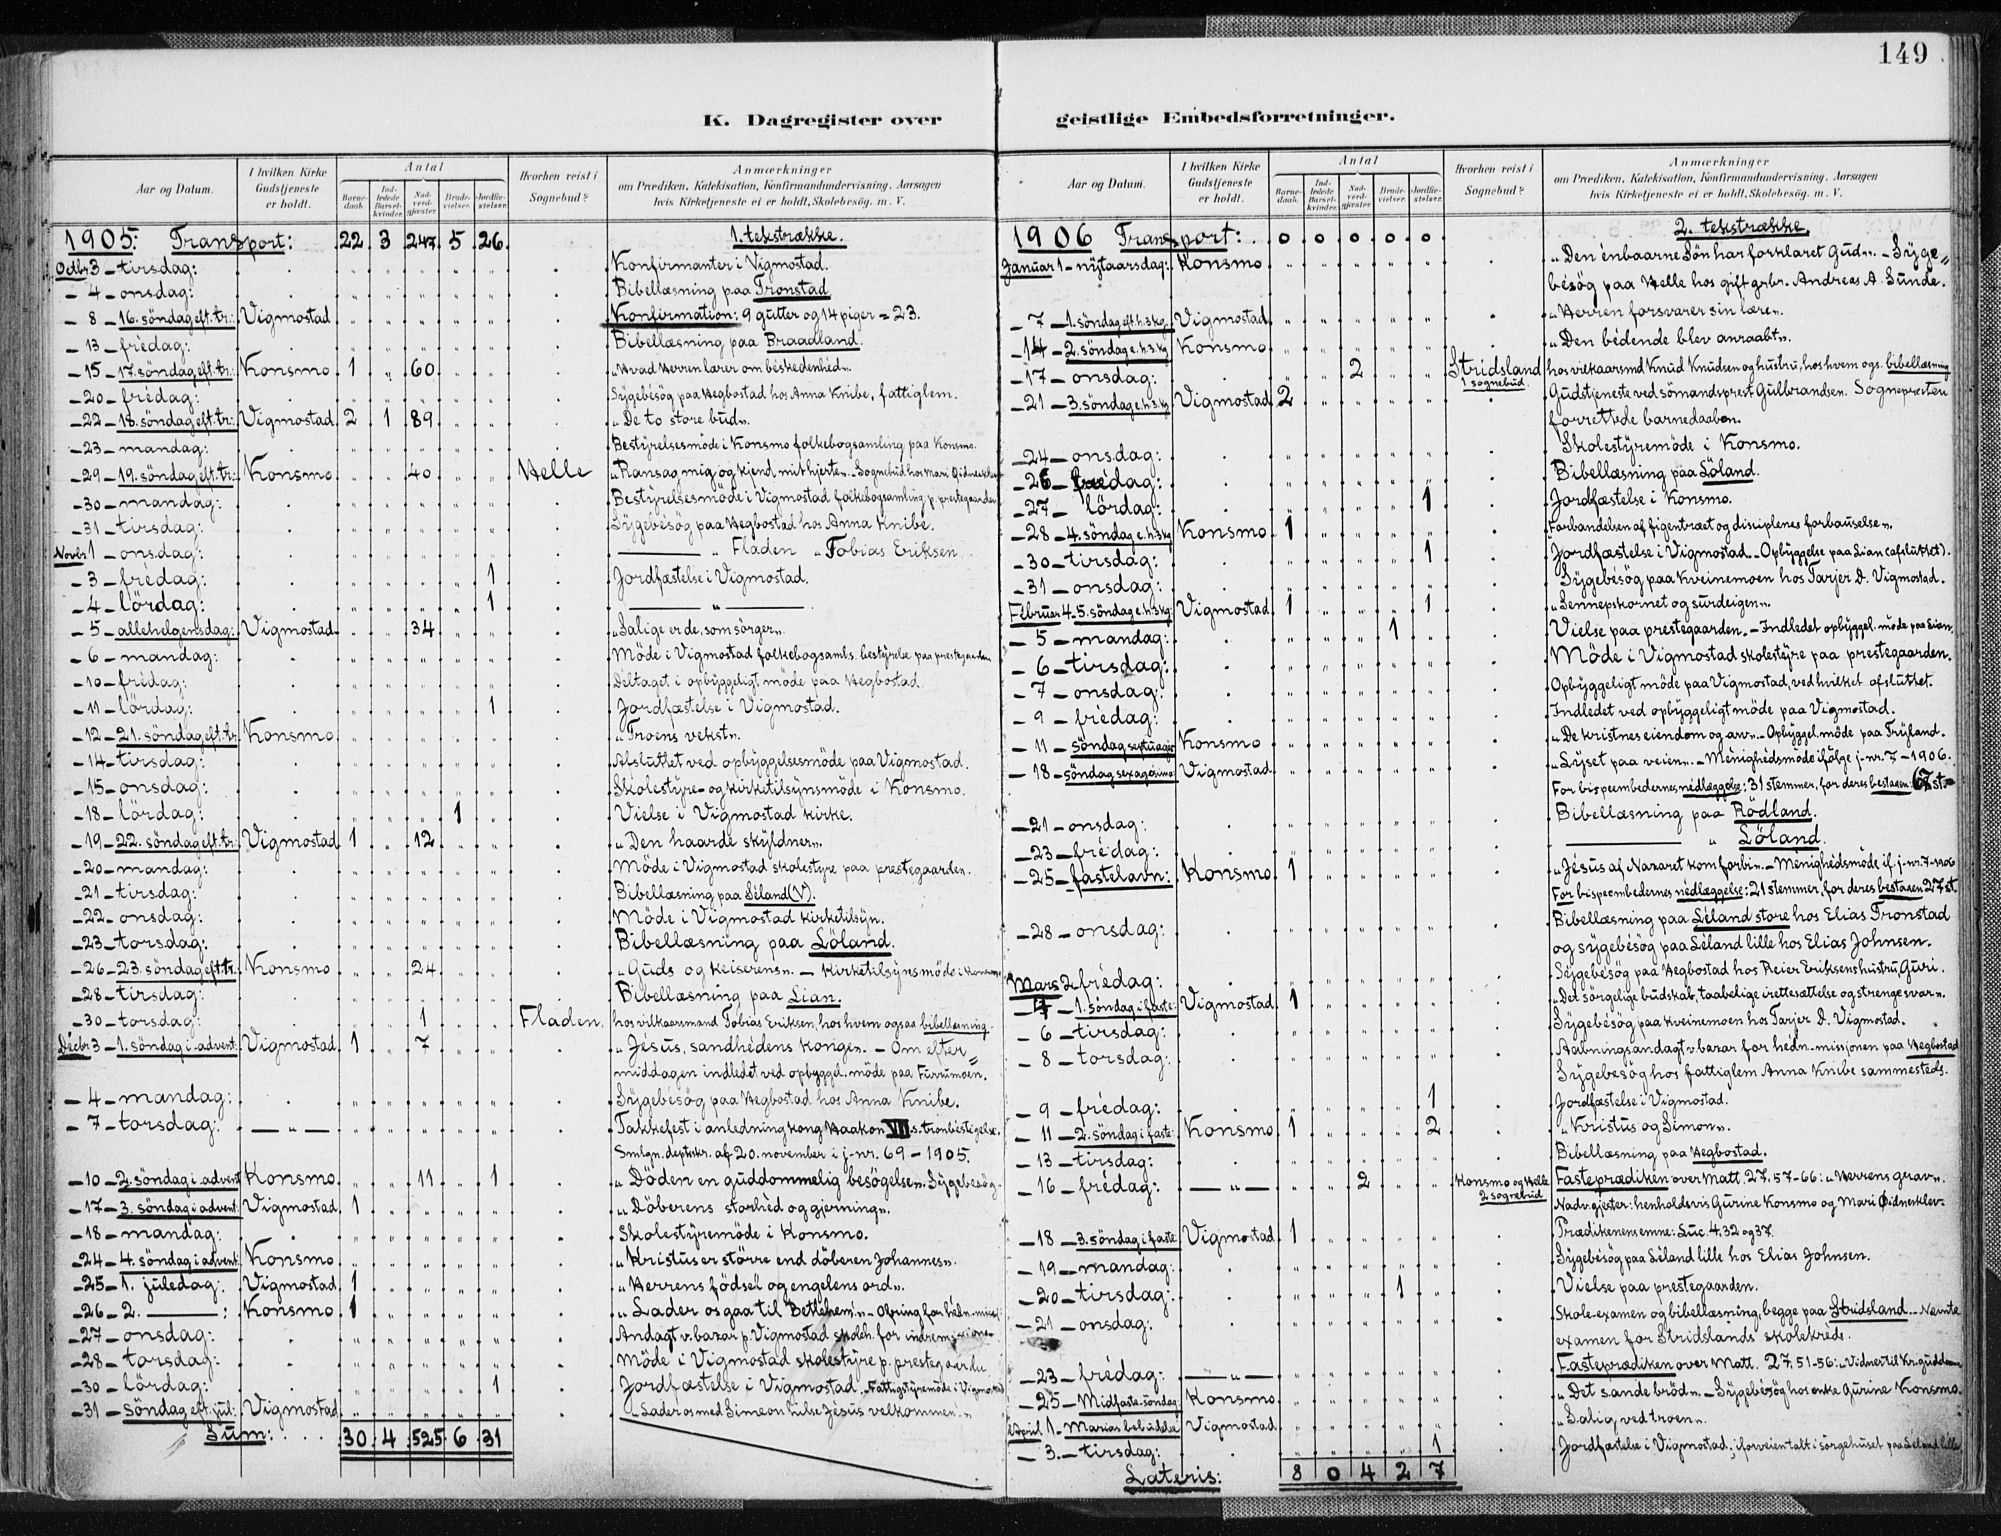 149
K. Dagregister over geistlige Embedsforretninger.
Aar og Datum. I hvilken Kirke Gudstjeneste er holdt. Antal Barnedaab. Indledede Barselkvinder. Nadverdgjæster. Brudevielser. Jordfæstelser. Hvorhen reist i Sognebud? Anmærkninger om Prædiken, Katekisation, Konfirmandundervisning, Aarsagen hvis Kirketjeneste ei er holdt, Skolebesög. m. V.
1905. Transport: 22 3 247 5 26 1. tekstrække.
Octbr 3 – tirsdag: Konfirmanter i Vigmostad.
– 4 – onsdag: Bibellæsning paa Tronstad
– 8 – 16. söndag eft. tr.: Vigmostad Konfirmation: 9 gutter og 14 piger = 23.
– 13 – frédag: Bibellæsning paa Braadland.
– 15 – 17. söndag eft. tr.: Konsmo 1 „ 60 „Hvad Herren lærer om beskedenhed".
– 20 – frédag: Sÿgebésög paa Hegbostad hos Anna Knibe, fattiglem.
– 22 – 18. söndag eft. tr.: Vigmostad 2 1 89 „De to store bud".
– 23 – mandag: Bestÿrelsesmöde i Konsmo folkebogsamling paa Konsmo.
– 29 – 19. söndag eft. tr.: Konsmo 40 Helle „Ransag mig og kjend mit hjerte". Sognebud hos Mari Öidneskleiv
– 30 – mandag: Bestÿrelsesmöde i Vigmostad folkebogsamling p. prestegaarden
– 31 – tirsdag: Sÿgebésög paa Hegbostad hos Anna Knibe.
Novbr 1 – onsdag: ——— „ Fladen „ Tobias Eriksen.
– 3 – frédag: 1 Jordfæstelse i Vigmostad.
– 4 – lördag: 1 ——— „ ———
– 5 – allehelgensdag: Vigmostad 34 „Salige er de, som sörger".
– 6 – mandag: Möde i Vigmostad folkebogsamls. bestÿrelse paa prestegaarden
– 10 – frédag: Deltaget i opbÿggeligt möde paa Hegbostad.
– 11 – lördag: 1 Jordfæstelse i Vigmostad.
– 12 – 21. söndag eft. tr. Konsmo „Troens vekst".
– 14 – tirsdag: Afsluttet ved opbÿggelsesmöde paa Vigmostad.
– 15 – onsdag: Skolestÿre- og kirketilsÿnsmöde i Konsmo.
– 18 – lördag: 1 Vielse i Vigmostad kirke.
– 19 – 22. söndag eft. tr.: Vigmostad 1 12 „Den haarde skÿldner".
– 20 – mandag: Möde i Vigmostad skolestÿre paa prestegaarden.
– 21 – tirsdag: Bibellæsning paa Séland (V).
– 22 – onsdag: Möde i Vigmostad kirketilsÿn.
– 23 – torsdag: Bibellæsning paa Löland.
– 26 – 23. söndag eft. tr. Konsmo 24 „Guds og keiserens". – Kirketilsÿnsmöde i Konsmo
– 28 – tirsdag: Bibellæsning paa Lian.
– 30 – torsdag: 1 Fladen. hos vilkaarsmand Tobias Eriksen, hos hvem ogsaa bibellæsning.
Décbr 3 – 1. söndag i advent: Vigmostad 1 „ 7 „Jésus, sandhédens konge". – Om efter-
middagen indledet ved opbyggel. möde paa Furrumoen.
– 4 – mandag: Sÿgebésög paa Hegbostad hos Anna Knibe.
– 7 – torsdag: — „ — Takkefest i anledning kong Haakon VII's tronbestigelse.
Smlgn. deptskr. af 20. november i j-nr. 69 – 1905.
– 10 – 2. söndag i advent Konsmo 11 1 „Döden en guddommelig besögelse". Sÿgebesög
– 17 – 3. söndag i advent: Vigmostad 1 „Döberens storhéd og gjerning".
– 18 – mandag: Skolestÿremöde i Konsmo.
– 24 – 4. söndag i advent: Konsmo „Kristus er större end döberen Johannes".
– 25 – 1. juledag: Vigmostad 1 „Herrens födsel og engelens ord".
– 26 – 2. ———: Konsmo 1 „Lader os gaa til Betlehem". – Ofring for hédn. miss.
– 27 – onsdag: Andagt v. bazar p. Vigmostad skoleh. for indremissionen
– 28 – torsdag: Möde i Vigmostad skolestÿre p. prestegaarden
– 30 – lördag: 1 Jordfæstelse i Vigmostad. Fattigstÿremöde i Vigmostad
– 31 – söndag eft. jul: Vigmostad „Lader os med Simeon hilse Jésus velkommen!"
Sum: . . . . 30 4 525 6 31
Aar og Datum. I hvilken Kirke Gudstjeneste er holdt. Antal Barnedaab. Indledede Barselkvinder. Nadverdgjæster. Brudevielser. Jordfæstelser. Hvorhen reist i Sognebud? Anmærkninger om Prædiken, Katekisation, Konfirmandundervisning, Aarsagen hvis Kirketjeneste ei er holdt, Skolebesög. m. V.
1906 Transport: . 0 0 0 0 0 2. tekstrække.
Januar 1 – nÿtaarsdag: Konsmo „Den énbaarne Sön har forklaret Gud". – Sÿge-
bésög paa Helle hos gift grbr. Andreas A. Sunde.
– 7 – 1. söndag eft. h.3kg. Vigmostad „Herren forsvarer sin lære".
– 14 – 2. söndag e. h.3.kg Konsmo „Den bédende blev anraabt".
– 17 – onsdag: 2 Stridsland 1 sognebud. hos vilkaarsmd Knud Knudsen og hustru, hos hvem ogs. bibellæsning
– 21 – 3. söndag e. h.3.kg. Vigmostad 2 Gudstjeneste ved sömandsprest Gulbrandsen. Sognepresten
forrettede barnedaaben.
– 24 – onsdag: Skolestÿremöde i Konsmo.
– 26 – frédag: Bibellæsning paa Löland.
– 27 – lördag: 1 Jordfæstelse i Konsmo.
– 28 – 4. söndag e. h.3kg Konsmo 1 Forbandelsen af figentræet og disciplenes forbauselse".
– 30 – tirsdag: 1 Jordfæstelse i Vigmostad. – Opbÿggelse paa Lian (afsluttet).
– 31 – onsdag: Sÿgebésög paa Kveinemoen hos Tarjer D. Vigmostad.
Februar 4 – 5. söndag e. h.3kg: Vigmostad 1 1 „Sennepskornet og surdeigen".
– 5 – mandag: 1 Vielse paa prestegaarden. – Indledet opbÿggel. möde paa Lian.
– 6 – tirsdag: Möde i Vigmostad skolestÿre paa prestegaarden.
– 7 – onsdag: Opbÿggeligt möde paa Vigmostad, ved hvilket afsluttet.
– 9 – frédag: Indledet ved opbÿggeligt möde paa Vigmostad.
– 11 – söndag septuages Konsmo „De kristnes eiendom og arv". – Opbÿggel. möde paa Trÿland.
– 18 – söndag sexagesima: Vigmostad „Lÿset paa veien". – Ménighédsmöde ifölge j-nr. 7 – 1906.
For bispeembedernes nédlæggelse: 31 stemmer, for deres bestaaen 67 st.
– 21 – onsdag: Bibellæsning paa Rödland.
– 23 – frédag: ——— „ Löland.
– 25 – fastelavn: Konsmo 1 „Jésus af Nazaret kom forbi". – Ménighédsmöde if. j-nr. 7-1906
For bispeembedernes nédlæggelse: 21 stemmer, for deres bestaaen 27 st.
– 28 – onsdag: Bibellæsning paa Léland store hos Elias Tronstad
og sÿgebésög paa Léland lille hos Elias Johnsen.
Mars 2 frédag: Sÿgebésög paa Hegbostad hos Reier Eriksens hustru, Guri.
– 4 – 1. söndag i faste: Vigmostad 1 „Det sörgelige budskab, taabelige irettesættelse og strenge svar".
– 6 – tirsdag: Sÿgebésög paa Kveinemoen hos Tarjer D. Vigmostad.
– 8 – torsdag: Aabningsandagt v. bazar for hédn.-missjonen paa Hegbostad
Sÿgebésög hos fattiglem Anna Knibe sammesteds.
– 9 – frédag: 1 Jordfæstelse i Vigmostad.
– 11 – 2. söndag i faste: Konsmo 1 2 „Kristus og Simon".
– 13 – tirsdag: Bibellæsning paa Hegbostad.
– 16 – frédag: — „ — 2 Konsmo og Helle 2 sognebud Fasteprædiken over Matt. 27. 57-66: „Herrens grav".
Nadv.gjester: henholdsvis Gurine Konsmo og Mari Öidneskleiv.
Prædikenens emne: Luc. 4.32 og 37.
– 18 – 3. söndag i faste: Vigmostad 1
– 19 – mandag: Sÿgebésög paa Léland lille hos Elias Johnsen.
– 20 – tirsdag: 1 Vielse paa prestegaarden.
– 21 – onsdag: Skole-examen og bibellæsning, begge paa Stridsland. – Nævnte
examen for Stridslands skolekreds.
– 23 – frédag: — „ — Fasteprædiken over Matt. 27. 51-56: „Vidner til Kr. guddom
– 25 – Midfaste-söndag Konsmo „Det sande bröd". – Sÿgebésög hos enke Gurine Konsmo.
April 1 – Marias bebudelse Vigmostad „Salig ved troen".
– 3. – tirsdag: 1 Jordfæstelse i Vigmostad; i forveien talt i sörgehuset paa Léland lille
Lateris: 8 0 4 2 7